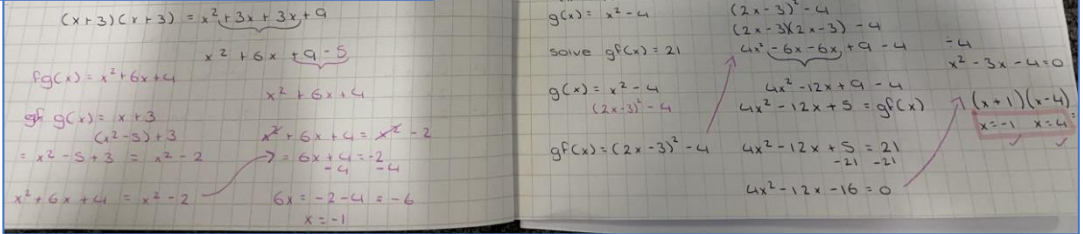 (x+3)(x+3) = x² + 3x + 3x + 9
x² + 6x + 9 - 5
fg(x) = x² + 6x + 4
x² + 6x + 4
g(x) = x + 3
(x² - 5) + 3
= x² - 5 + 3 = x² - 2
x² + 6x + 4 = x² - 2
x² + 6x + 4 = x² - 2
= 6x + 4 = -2
-4 -4
6x = -2 - 4 = -6
x = -1
g(x) = x² - 4
solve gf(x) = 21
g(x) = x² - 4
(2x - 3)² - 4
gf(x) = (2x - 3)² - 4
(2x - 3)² - 4
(2x - 3)(2x - 3) - 4
4x² - 6x - 6x + 9 - 4
4x² - 12x + 9 - 4
4x² - 12x + 5 = gf(x)
4x² - 12x + 5 = 21
-21 -21
4x² - 12x - 16 = 0
-4
x² - 3x - 4 = 0
(x + 1)(x - 4)
x = -1 x = 4